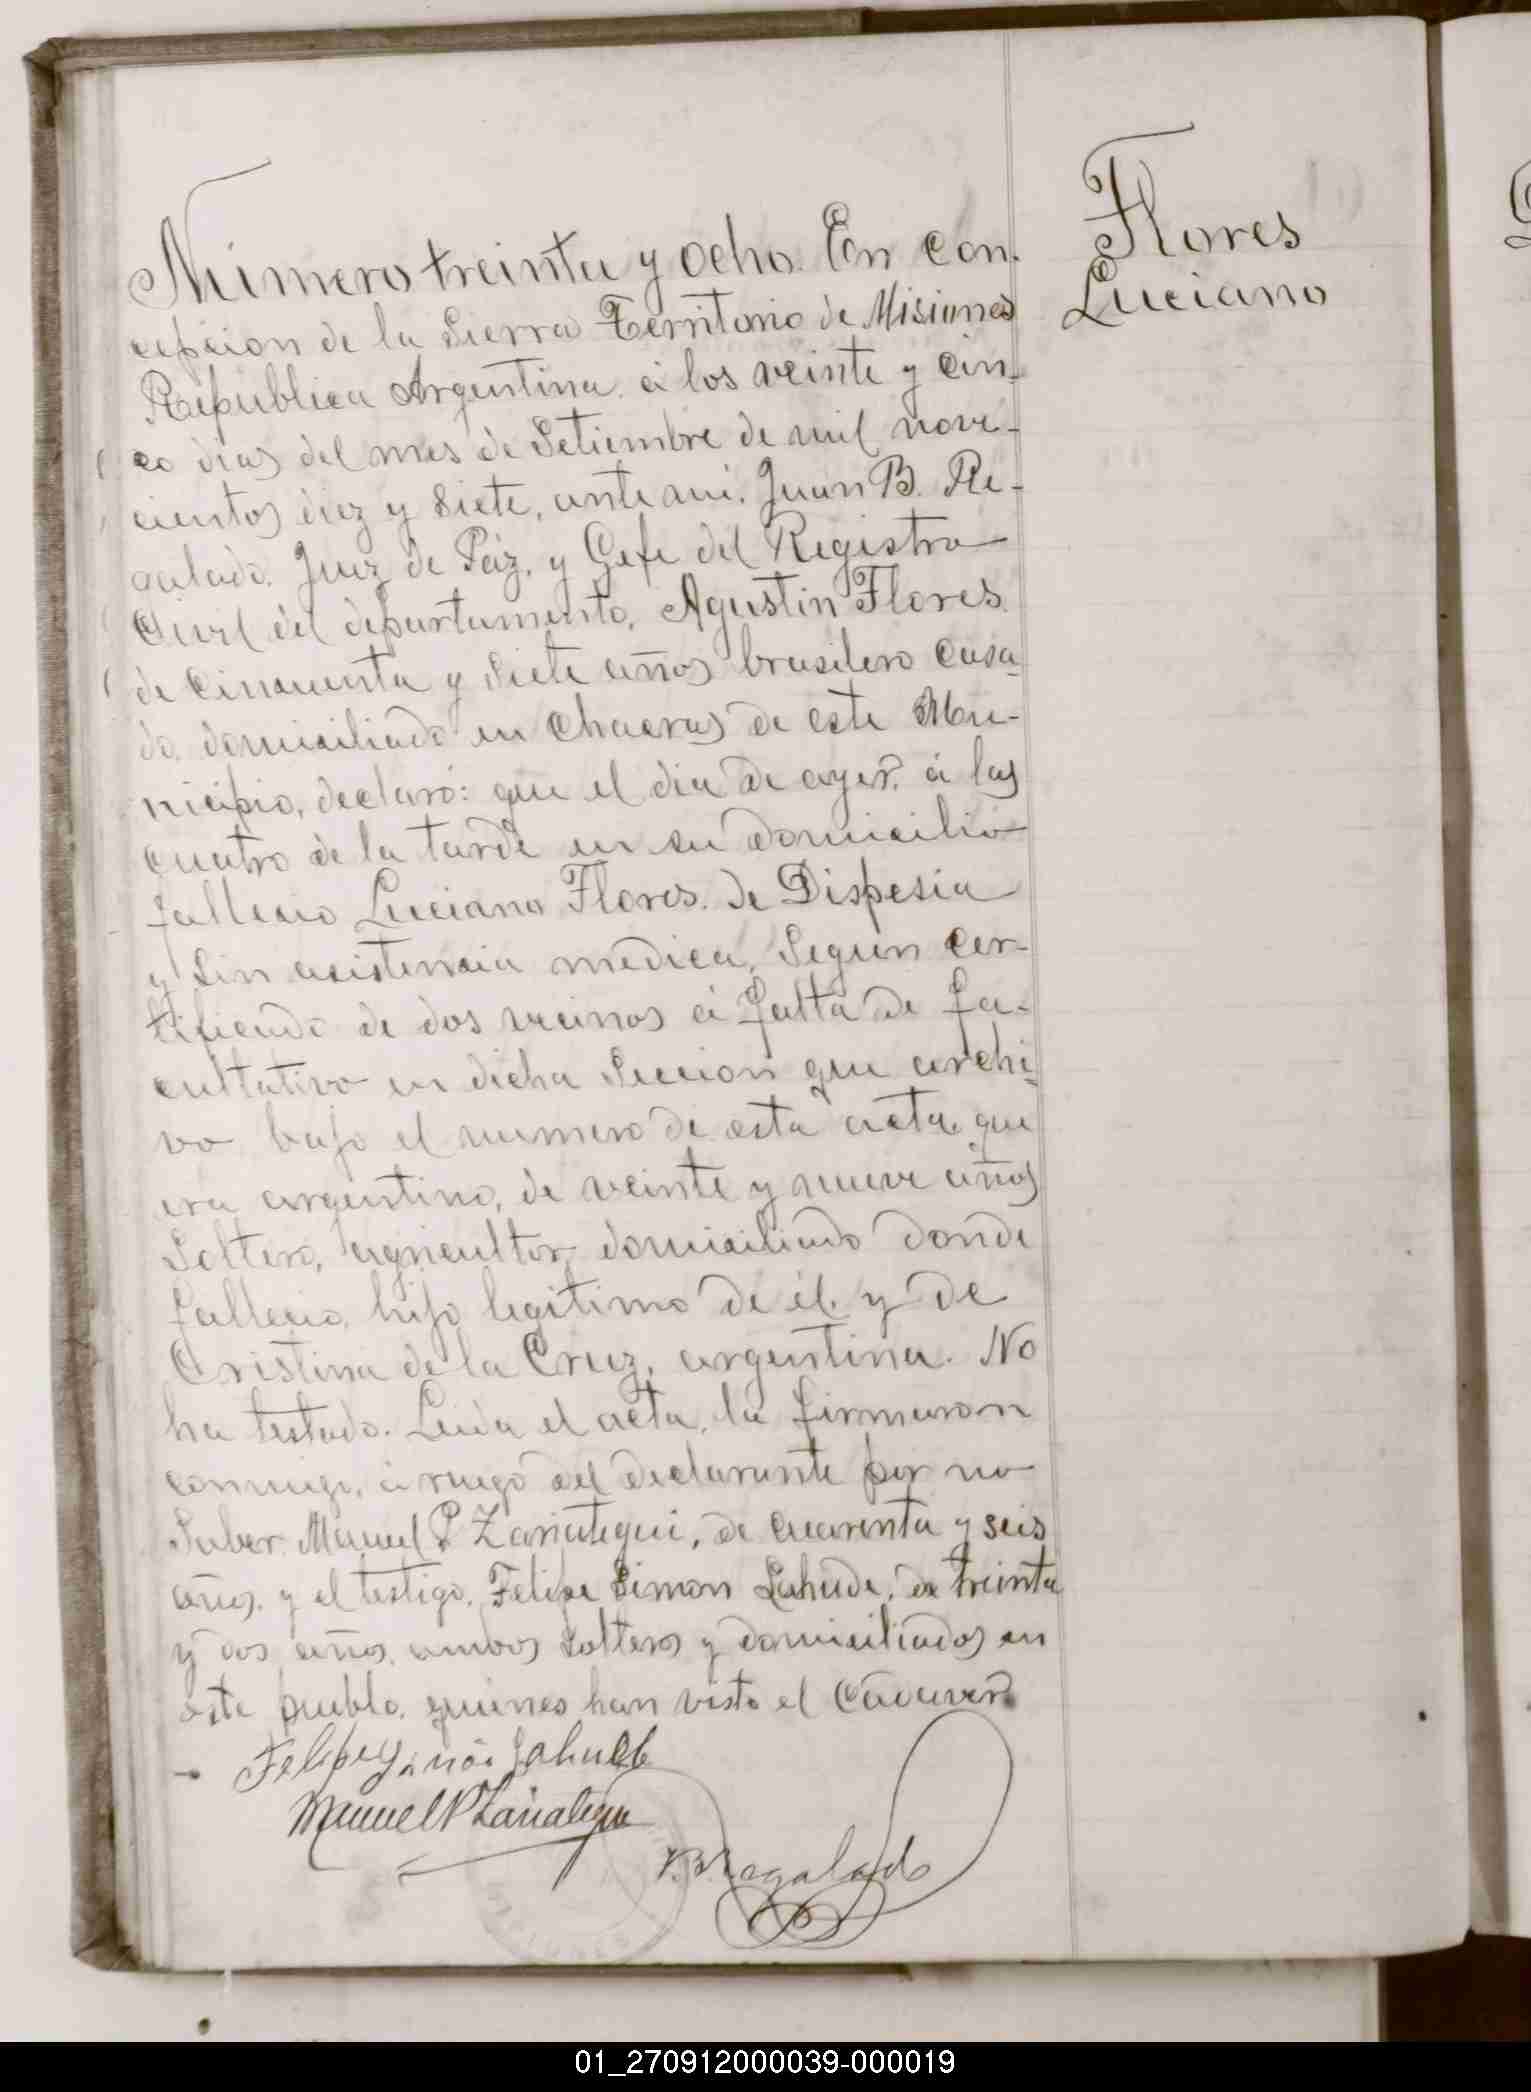 Flores
Luciano
Número treinta y ocho. En Con-
cepcion de la Sierra Territorio de Misiones
República Argentina á los veinte y cin-
co dias del mes de Setiembre de mil nove-
cientos diez y siete, ante mi, Juan B. Re-
galado, Juez de Páz, y Gefe del Registro
Civil del departamento, Agustin Flores
de cincuenta y siete años brasilero casa-
do, domiciliado en chacras de este Mu-
nicipio, declaró: que el dia de ayer, á las
cuatro de la tarde en su domicilio
fallecio Luciano Flores, de Dispesia
y sin asistencia medica, segun cer-
tificado de dos vecinos á falta de fa-
cultativo en dicha Seccion que archi-
vo bajo el numero de esta acta, que
era argentino, de veinte y nueve años
Soltero, agricultor, domiciliado donde
fallecio, hijo legitimo de él y de
Cristina de la Cruz, argentina. No
ha testado. Leida el acta, la firmaron
conmigo, á ruego del declarante por no
saber Manuel P Zariategui, de cuarenta y seis
años, y el testigo, Felipe Simon Lahude, de treinta
y dos años, ambos solteros y domiciliados en
este pueblo, quienes han visto el cadaver.
Felipe Simón Lahude
Manuel P Zariategui
J. B. Regalado
01_270912000039-000019